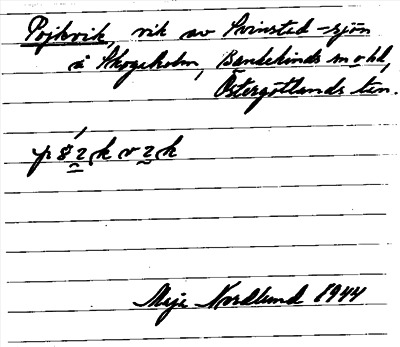 Pojkvik, vik av Svinsted-sjön
i Skogsholm, Bankekinds sn o hd,
Östergötlands län.
Maja Nordlund 1944